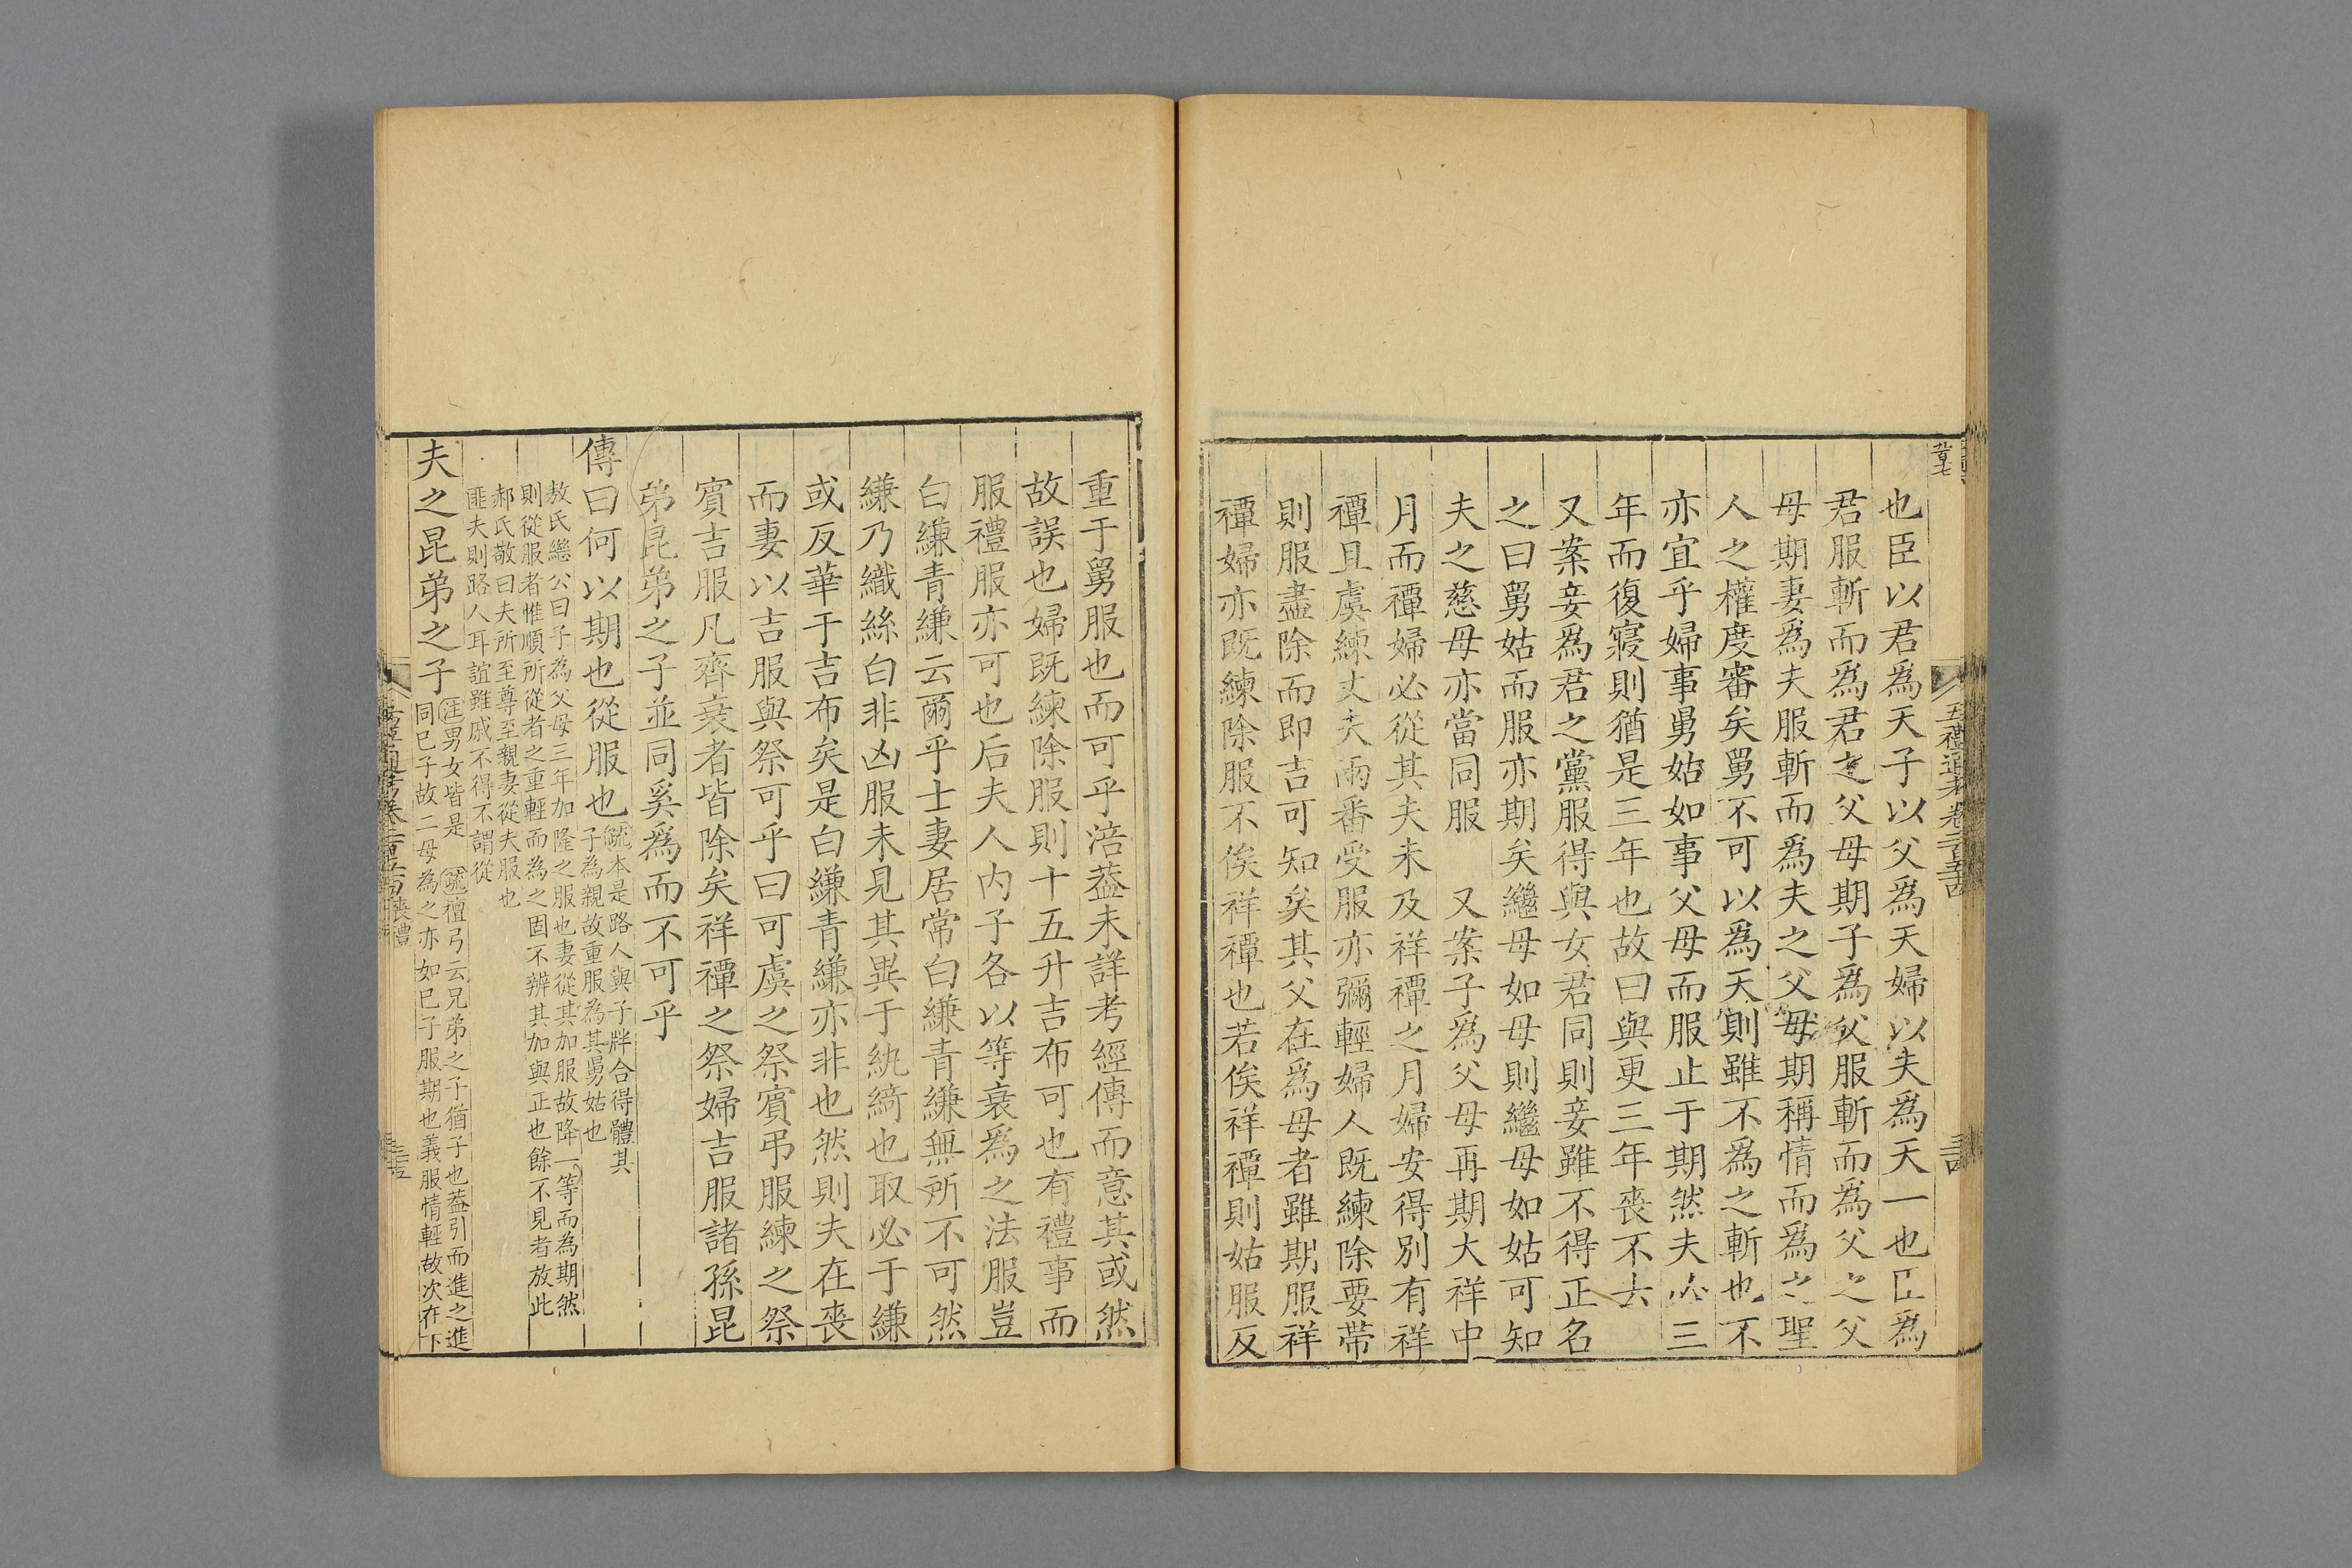 也臣以君爲天子以父爲天婦以夫爲天一也臣爲
君服斬而爲君之父母期子爲父服斬而爲父之父
母期妻爲夫服斬而爲夫之父母期稱情而爲之聖
人之權度審矣舅不可以爲天則雖不爲之斬也不
亦宜乎婦事舅姑如事父母而服止于期然夫必三
年而復寢則猶是三年也故曰與更三年喪不去
又案妾爲君之黨服得與女君同則妾雖不得正名
之曰舅姑而服亦期矣繼母如母則繼母如姑可知
夫之慈母亦當同服 又案子爲父母再期大祥中
月而禫婦必從其夫未及祥禫之月婦安得別有祥
禫且虞練丈夫兩番受服亦彌輕婦人既練除要帶
則服盡除而即吉可知矣其父在爲母者雖期服祥
禫婦亦既練除服不俟祥禫也若俟祥禫則姑服反
重于舅服也而可乎涪蓋未詳考經傳而意其或然
故誤也婦既練除服則十五升吉布可也有禮事而
服禮服亦可也后夫人內子各以等衰爲之法服豈
白縑青縑云爾乎士妻居常白縑青縑無所不可然
縑乃織絲白非凶服未見其異于紈綺也取必于縑
或反華于吉布矣是白縑青縑亦非也然則夫在喪
而妻以吉服與祭可乎曰可虞之祭賓弔服練之祭
賓吉服凡齊衰者皆除矣祥禫之祭婦吉服諸孫昆
弟昆弟之子並同奚爲而不可乎
傳曰何以期也從服也疏本是路人與子牉合得體其
子為親故重服為其舅姑也
敖氏繼公曰子為父母三年加隆之服也妻從其加服故降一等而為期然
則從服者惟順所從者之重輕而為之固不辨其加與正也餘不見者放此
郝氏敬曰夫所至尊至親妻從夫服也
匪夫則路人耳誼雖戚不得不謂從
夫之昆弟之子注男女皆是 疏檀弓云兄弟之子猶子也蓋引而進之進
同己子故二母為之亦如己子服期也義服情輕故次在下